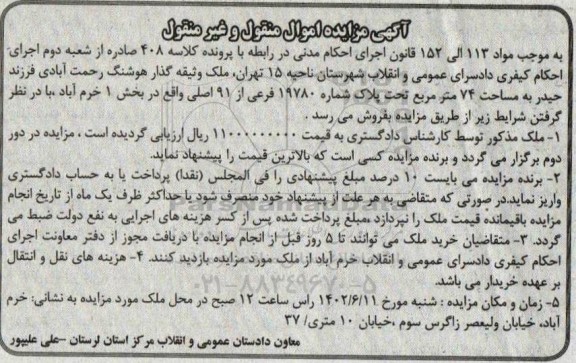 آگهی مزایده اموال منقول و غیر منقول
به موجب مواد ۱۱۳ الی ۱۵۲ قانون اجرای احکام مدنی در رابطه با پرونده کلاسه ۴۰۸ صادره از شعبه دوم اجرای
احکام کیفری دادسرای عمومی و انقلاب شهرستان ناحیه ۱۵ تهران، ملک وثیقه گذار هوشنگ رحمت آبادی فرزند
حیدر به مساحت ۷۴ متر مربع تحت پلاک شماره ۱۹۷۸۰ فرعی از ۹۱ اصلی واقع در بخش ۱ خرم آباد ،با در نظر
گرفتن شرایط زیر از طریق مزایده بفروش می رسد .
۱- ملک مذکور توسط کارشناس دادگستری به قیمت ۱۱۰۰۰۰۰۰۰۰۰ ریال ارزیابی گردیده است ، مزایده در دور
دوم برگزار می گردد و برنده مزایده کسی است که بالاترین قیمت را پیشنهاد نماید.
۲- برنده مزایده می بایست ۱۰ درصد مبلغ پیشنهادی را فی المجلس (نقدا) پرداخت یا به حساب دادگستری
واریز نماید.در صورتی که متقاضی به هر علت از پیشنهاد خود منصرف شود یا حداکثر ظرف یک ماه از تاریخ انجام
مزایده باقیمانده قیمت ملک را نپردازد ،مبلغ پرداخت شده پس از کسر هزینه های اجرایی به نفع دولت ضبط می
گردد. ۳- متقاضیان خرید ملک می توانند تا ۵ روز قبل از انجام مزایده با دریافت مجوز از دفتر معاونت اجرای
احکام کیفری دادسرای عمومی و انقلاب خرم آباد از ملک مورد مزایده بازدید کنند. ۴- هزینه های نقل و انتقال
بر عهده خریدار می باشد.
۰۲۱-۸۸۳۴۹۶۷۰-۵
۵- زمان و مکان مزایده : شنبه مورخ ۱۴۰۲/۶/۱۱ راس ساعت ۱۲ صبح در محل ملک مورد مزایده به نشانی: خرم
آباد، خیابان ولیعصر زاگرس سوم ،خیابان ۱۰ متری/ ۳۷
معاون دادستان عمومی و انقلاب مرکز استان لرستان -علی علیپور